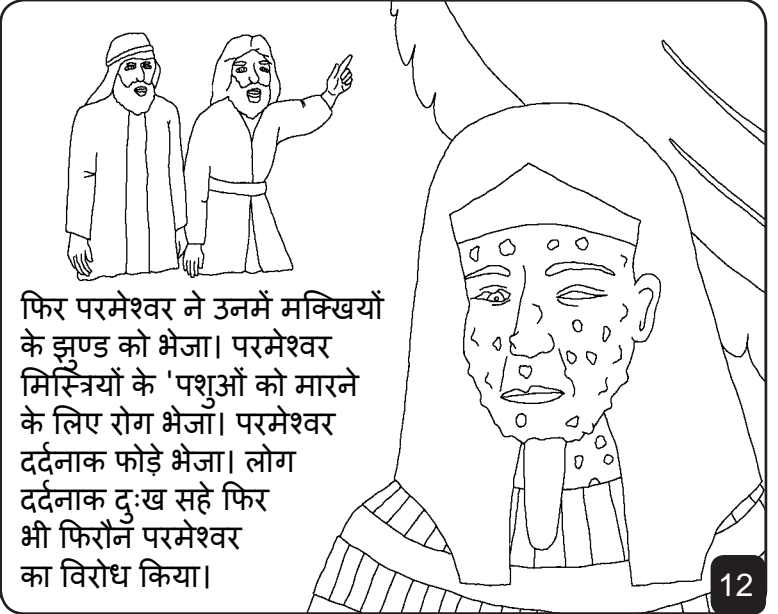 फिर परमेश्वर ने उनमें मक्खियों
के झुण्ड को भेजा। परमेश्वर
मिस्त्रियों के 'पशुओं को मारने
के लिए रोग भेजा। परमेश्वर
दर्दनाक फोड़े भेजा। लोग
दर्दनाक दुःख सहे फिर
भी फिरौन परमेश्वर
का विरोध किया।
12